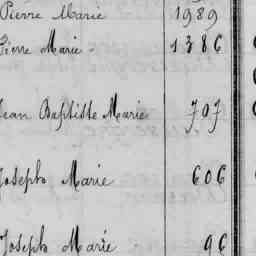 Pierre Marie 1989
Pierre Marie - 1386
Jean Baptiste Marie 707
Joseph Marie 606
Joseph Marie 96